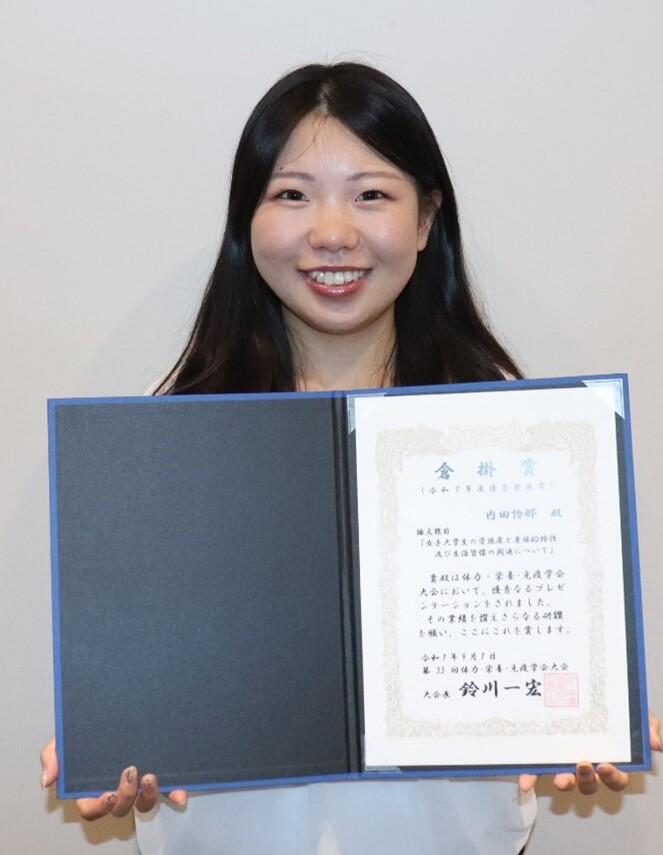 倉掛賞
(令和7年度優秀発表賞)
内田 殿
論文題目
「女子大学生の骨強度と身体的特性
及び生活習慣の関連について」
貴殿は体力・栄養・免疫学会
大会において、優秀なるプレゼ
ンテーションをされました。
その業績を讃えさらなる研鑽
を願い、ここにこれを賞します。
令和7年9月7日
第33回体力・栄養・免疫学会大会
大会長 鈴川一宏